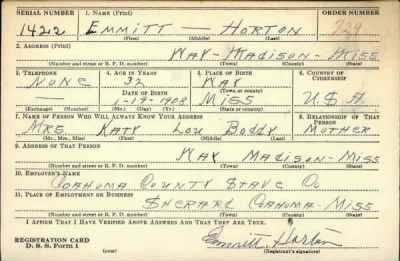 SERIAL NUMBER 1. NAME (Print) ORDER NUMBER
1422 EMMITT — HORTON 729
(First) (Middle) (Last)
2. ADDRESS (Print)
WAY - MADISON - MISS
(Number and street or R. F. D. number) (Town) (County) (State)
3. TELEPHONE 4. AGE IN YEARS 5. PLACE OF BIRTH 6. COUNTRY OF CITIZENSHIP
NONE 32 WAY
DATE OF BIRTH (Town or county)
1-19-1908 MISS U.S.A.
(Exchange) (Number) (Mo.) (Day) (Yr.) (State or country)
7. NAME OF PERSON WHO WILL ALWAYS KNOW YOUR ADDRESS 8. RELATIONSHIP OF THAT PERSON
MRS. KATY LOU BODDY MOTHER
(Mr., Mrs., Miss) (First) (Middle) (Last)
9. ADDRESS OF THAT PERSON
WAY MADISON - MISS
(Number and street or R. F. D. number) (Town) (County) (State)
10. EMPLOYER'S NAME
COAHOMA COUNTY STAVE CO
11. PLACE OF EMPLOYMENT OR BUSINESS
SHERARD COAHOMA - MISS
(Number and street or R. F. D. number) (Town) (County) (State)
I AFFIRM THAT I HAVE VERIFIED ABOVE ANSWERS AND THAT THEY ARE TRUE.
REGISTRATION CARD Emmitt Horton
D. S. S. Form 1 (over) (Registrant's signature)